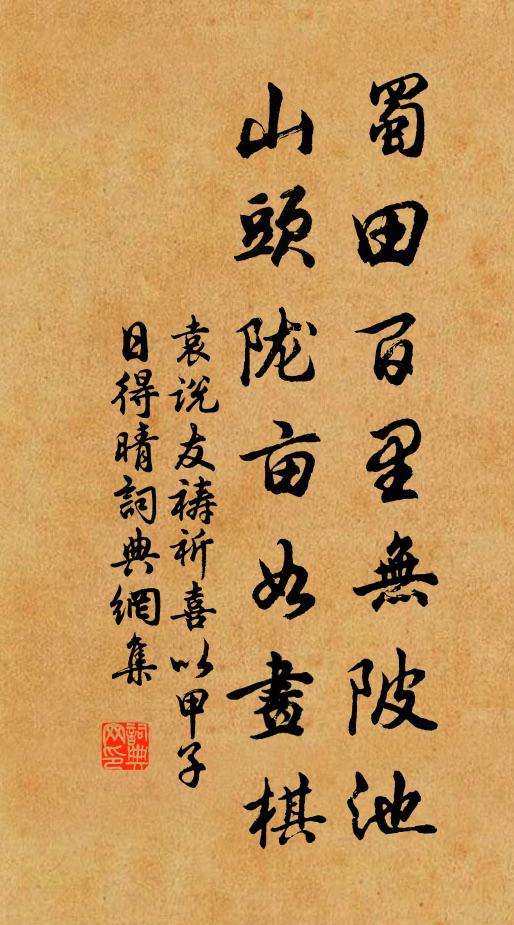 蜀田百里無陂池
山頭陇亩如畫棋
袁说友祷祈喜以甲子
日得晴詞典網集
詞典
网印